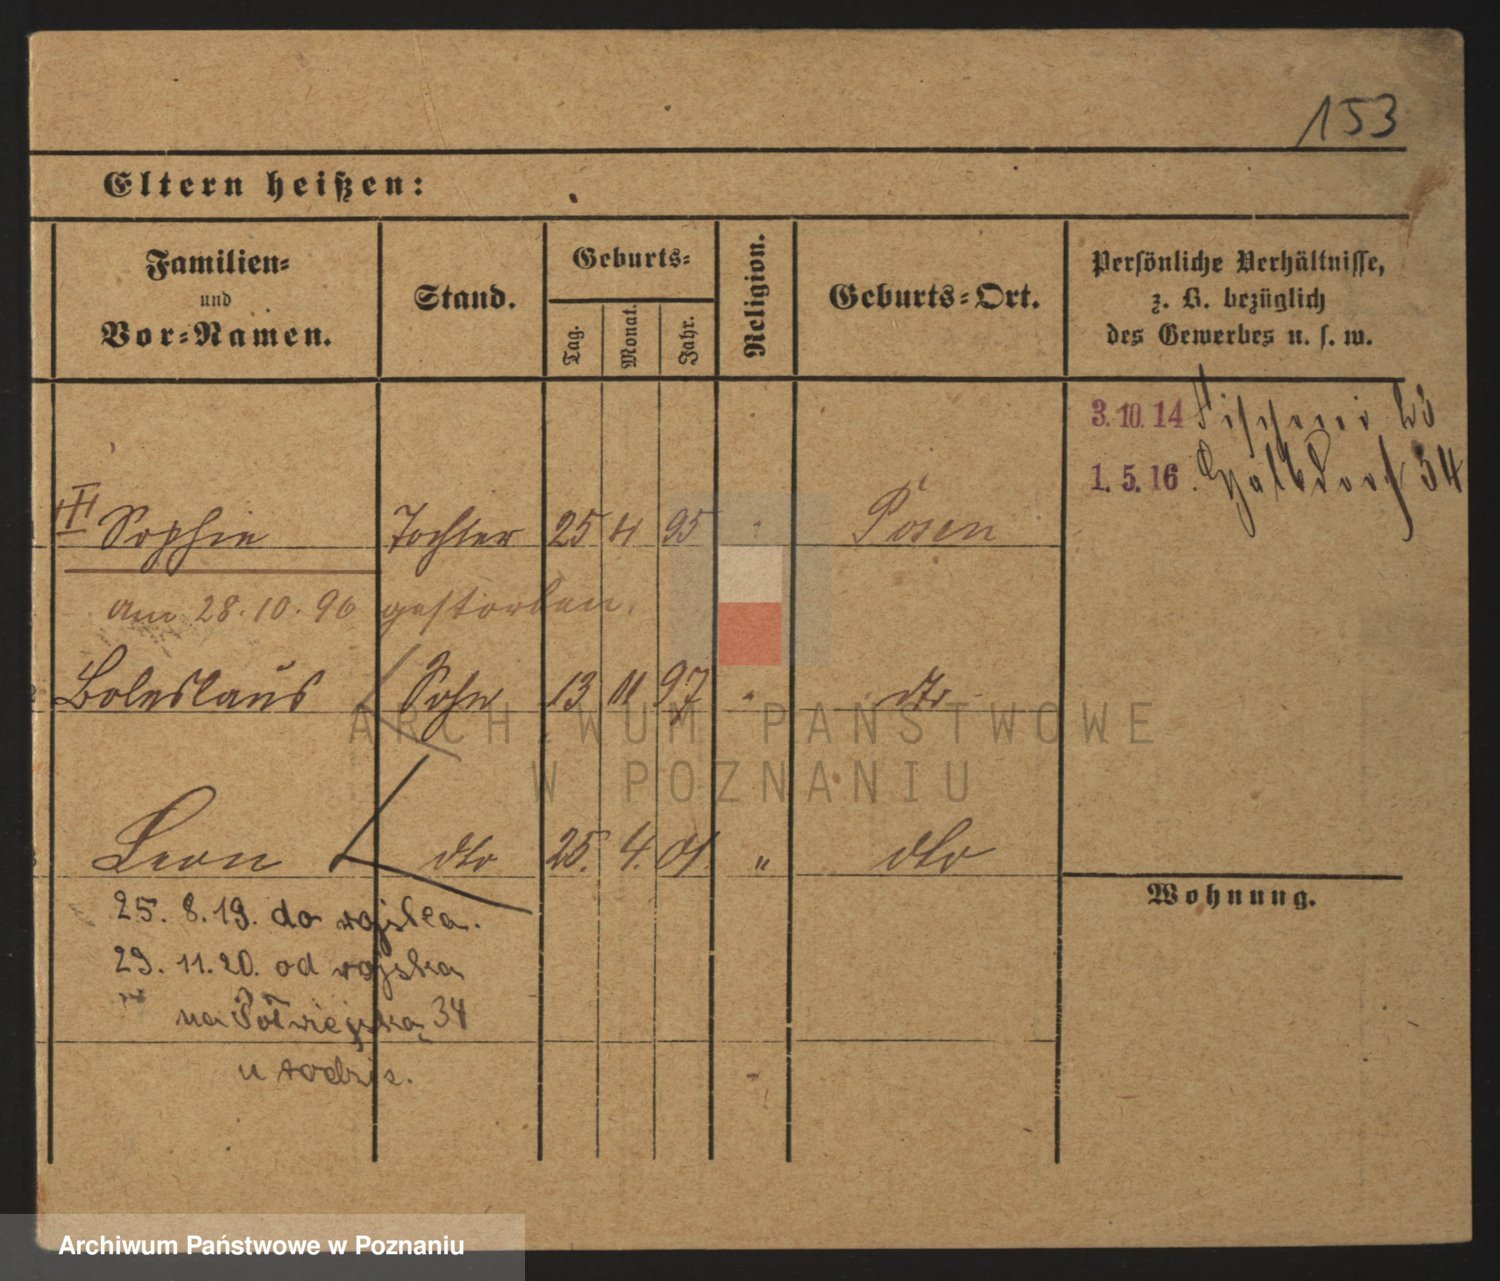 153
Eltern heißen:
Familien-
und
Vor-Namen.
Stand.
Geburts-
Tag.
Monat.
Jahr.
Religion.
Geburts-Ort.
Persönliche Verhältnisse,
z. B. bezüglich
des Gewerbes u. s. w.
3.10.14 Fischerei 23
1.5.16. Halbdorf 34
III Sophie Tochter 25 4 95 " Posen
am 28.10.96 gestorben.
Boleslaus Sohn 13 11 97 " dto
ARCHIWUM PAŃSTWOWE
W POZNANIU
Leon dto 25. 4. 01. " dto
Wohnung.
25. 8. 19. do wojska.
29. 11. 20. od wojska
na Półwiejską 34
u rodzic.
Archiwum Państwowe w Poznaniu